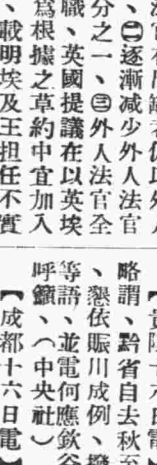 、㊁逐漸减少外人法官
分之一、㊂外人法官全
職、英國提議在以英埃
爲根據之草約中宜加入
、載明埃及王担任不實
略謂、黔省自去秋至
、懇依賑川成例、撥
等語、並電何應欽谷
呼籲、（中央社）
【成都十六日電】